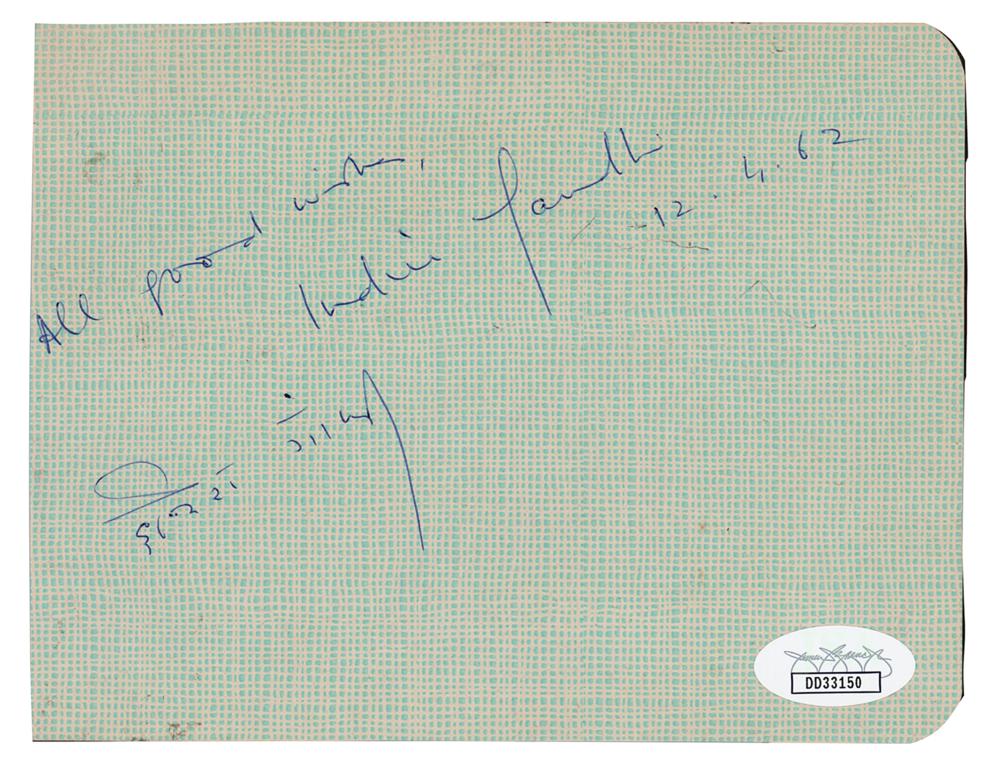 All good wishes,
Indira Gandhi
12.4.62
इन्दिरा गांधी
DD33150